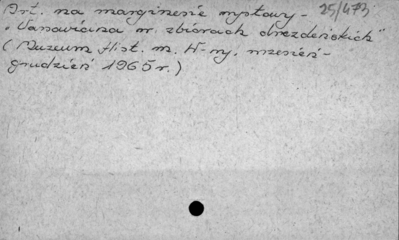 Art. na marginesie wystawy - 25/473
„Varsoviana w zbiorach drezdeńskich"
(Muzeum Hist. m. W-wy, wrzesień-
grudzień 1965 r.)